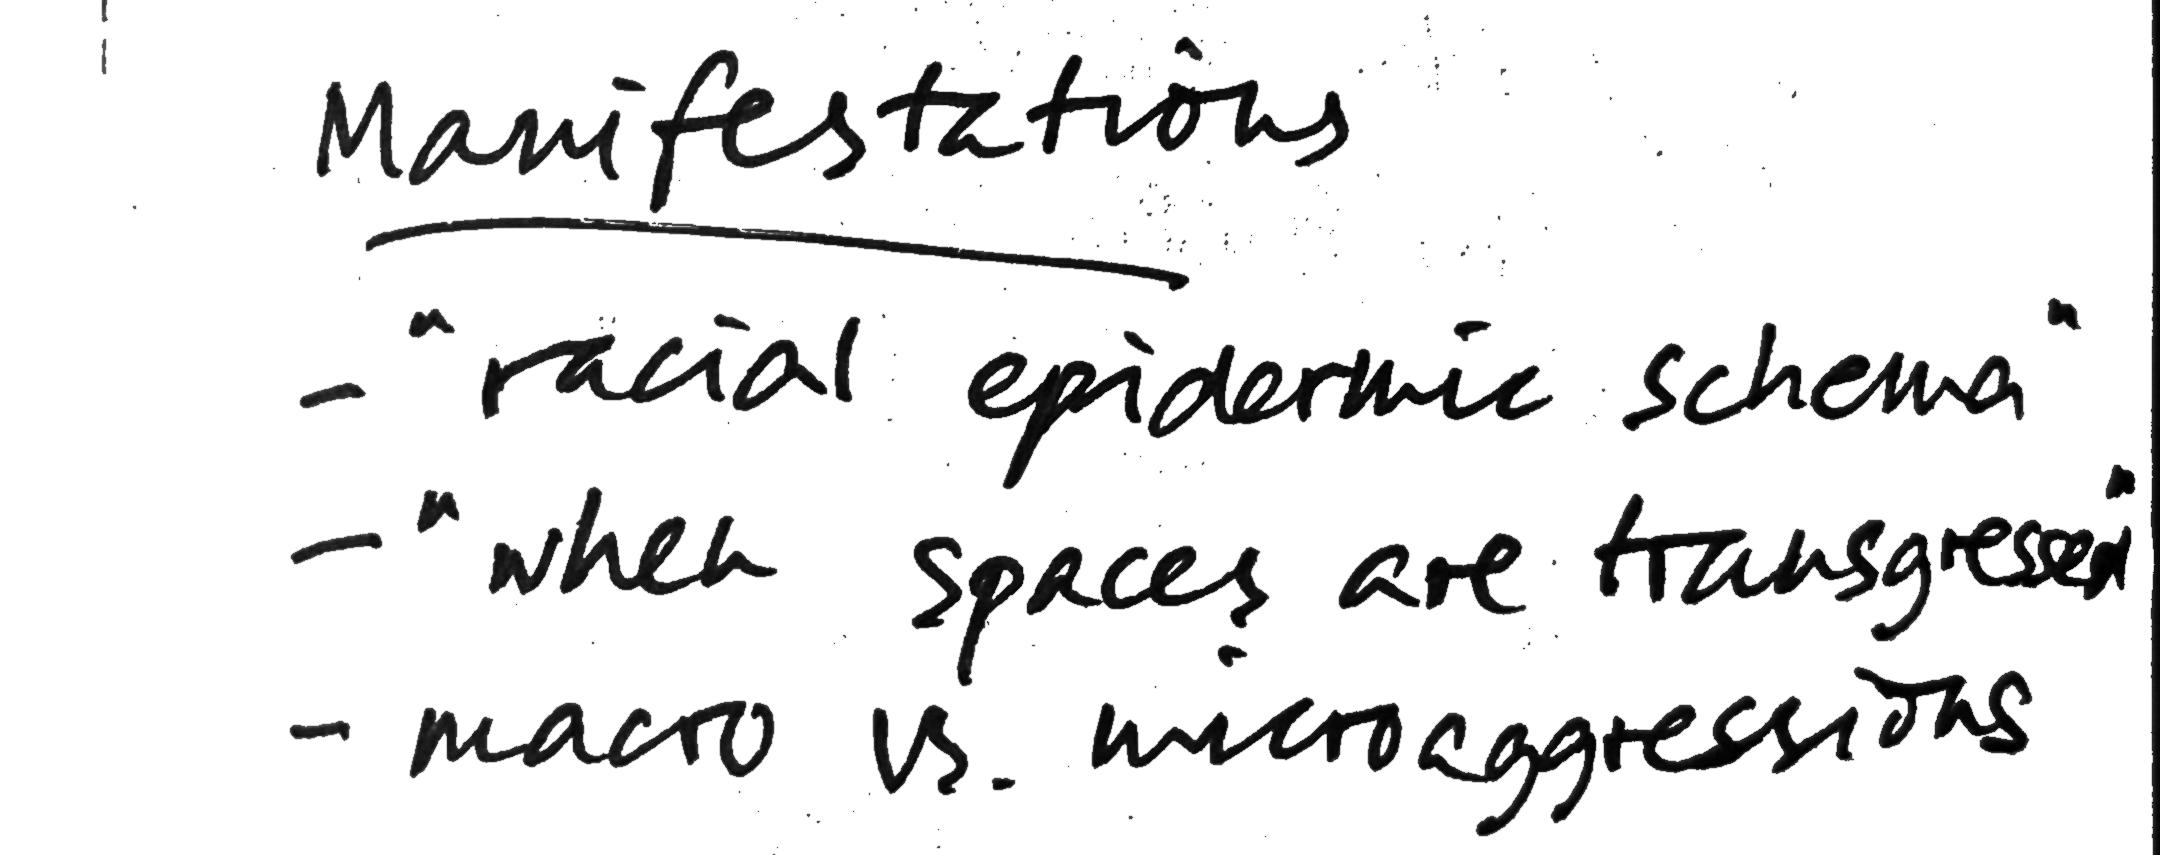 Manifestations
- "racial epidermic schema"
- "when spaces are transgressed"
- macro vs. microaggressions